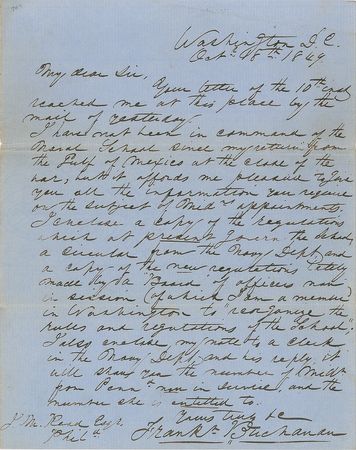 Washington D.C.
Oct. 18th 1849
My dear Sir,
Your letter of the 10th inst
reached me at this place by the
mail of yesterday.
I have not been in command of the
Naval School since my return from
the Gulf of Mexico at the close of the
war, but it affords me pleasure to give
you all the information you require
on the subject of Midn appointments.
I enclose a copy of the regulations
which at present govern the School,
a circular from the Navy Dept, and
a copy of the new regulations lately
made by a Board of officers now
in session (of which I am a member)
in Washington to "reorganize the
rules and regulations of the School";
I also enclose my note to a clerk
in the Navy Dept, and his reply, it
will show you the number of Midn
from Penna now in service, and the
number she is entitled to.
Yours truly &c
J. M. Read Esqr.
Phila
Frankn Buchanan